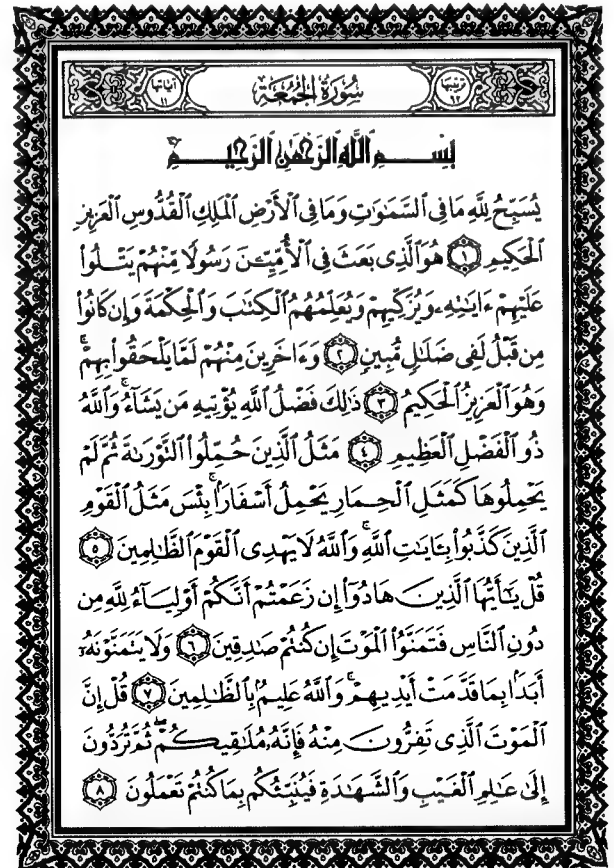 ترتيبها ٦٢ سُورَةُ الجُمُعَةِ آياتها ١١
بِسْمِ ٱللَّهِ ٱلرَّحْمَٰنِ ٱلرَّحِيمِ
يُسَبِّحُ لِلَّهِ مَا فِى ٱلسَّمَٰوَٰتِ وَمَا فِى ٱلْأَرْضِ ٱلْمَلِكِ ٱلْقُدُّوسِ ٱلْعَزِيزِ
ٱلْحَكِيمِ ١ هُوَ ٱلَّذِى بَعَثَ فِى ٱلْأُمِّيِّـۧنَ رَسُولًا مِّنْهُمْ يَتْلُوا۟
عَلَيْهِمْ ءَايَٰتِهِۦ وَيُزَكِّيهِمْ وَيُعَلِّمُهُمُ ٱلْكِتَٰبَ وَٱلْحِكْمَةَ وَإِن كَانُوا۟
مِن قَبْلُ لَفِى ضَلَٰلٍ مُّبِينٍ ٢ وَءَاخَرِينَ مِنْهُمْ لَمَّا يَلْحَقُوا۟ بِهِمْ ۚ
وَهُوَ ٱلْعَزِيزُ ٱلْحَكِيمُ ٣ ذَٰلِكَ فَضْلُ ٱللَّهِ يُؤْتِيهِ مَن يَشَآءُ ۚ وَٱللَّهُ
ذُو ٱلْفَضْلِ ٱلْعَظِيمِ ٤ مَثَلُ ٱلَّذِينَ حُمِّلُوا۟ ٱلتَّوْرَىٰةَ ثُمَّ لَمْ
يَحْمِلُوهَا كَمَثَلِ ٱلْحِمَارِ يَحْمِلُ أَسْفَارًۢا ۚ بِئْسَ مَثَلُ ٱلْقَوْمِ
ٱلَّذِينَ كَذَّبُوا۟ بِـَٔايَٰتِ ٱللَّهِ ۚ وَٱللَّهُ لَا يَهْدِى ٱلْقَوْمَ ٱلظَّٰلِمِينَ ٥
قُلْ يَٰٓأَيُّهَا ٱلَّذِينَ هَادُوٓا۟ إِن زَعَمْتُمْ أَنَّكُمْ أَوْلِيَآءُ لِلَّهِ مِن
دُونِ ٱلنَّاسِ فَتَمَنَّوُا۟ ٱلْمَوْتَ إِن كُنتُمْ صَٰدِقِينَ ٦ وَلَا يَتَمَنَّوْنَهُۥٓ
أَبَدًۢا بِمَا قَدَّمَتْ أَيْدِيهِمْ ۚ وَٱللَّهُ عَلِيمٌۢ بِٱلظَّٰلِمِينَ ٧ قُلْ إِنَّ
ٱلْمَوْتَ ٱلَّذِى تَفِرُّونَ مِنْهُ فَإِنَّهُۥ مُلَٰقِيكُمْ ۖ ثُمَّ تُرَدُّونَ
إِلَىٰ عَٰلِمِ ٱلْغَيْبِ وَٱلشَّهَٰدَةِ فَيُنَبِّئُكُم بِمَا كُنتُمْ تَعْمَلُونَ ٨